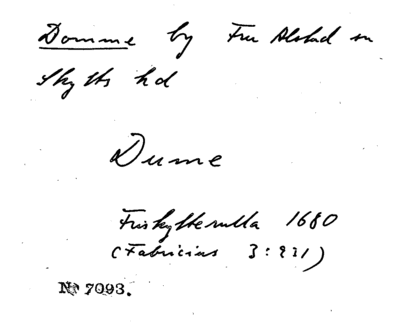 Domme by Fru Alstad sn
Skytts hd
Dume
Friskytterulla 1680
(Fabricius 3:231)
No 7093.